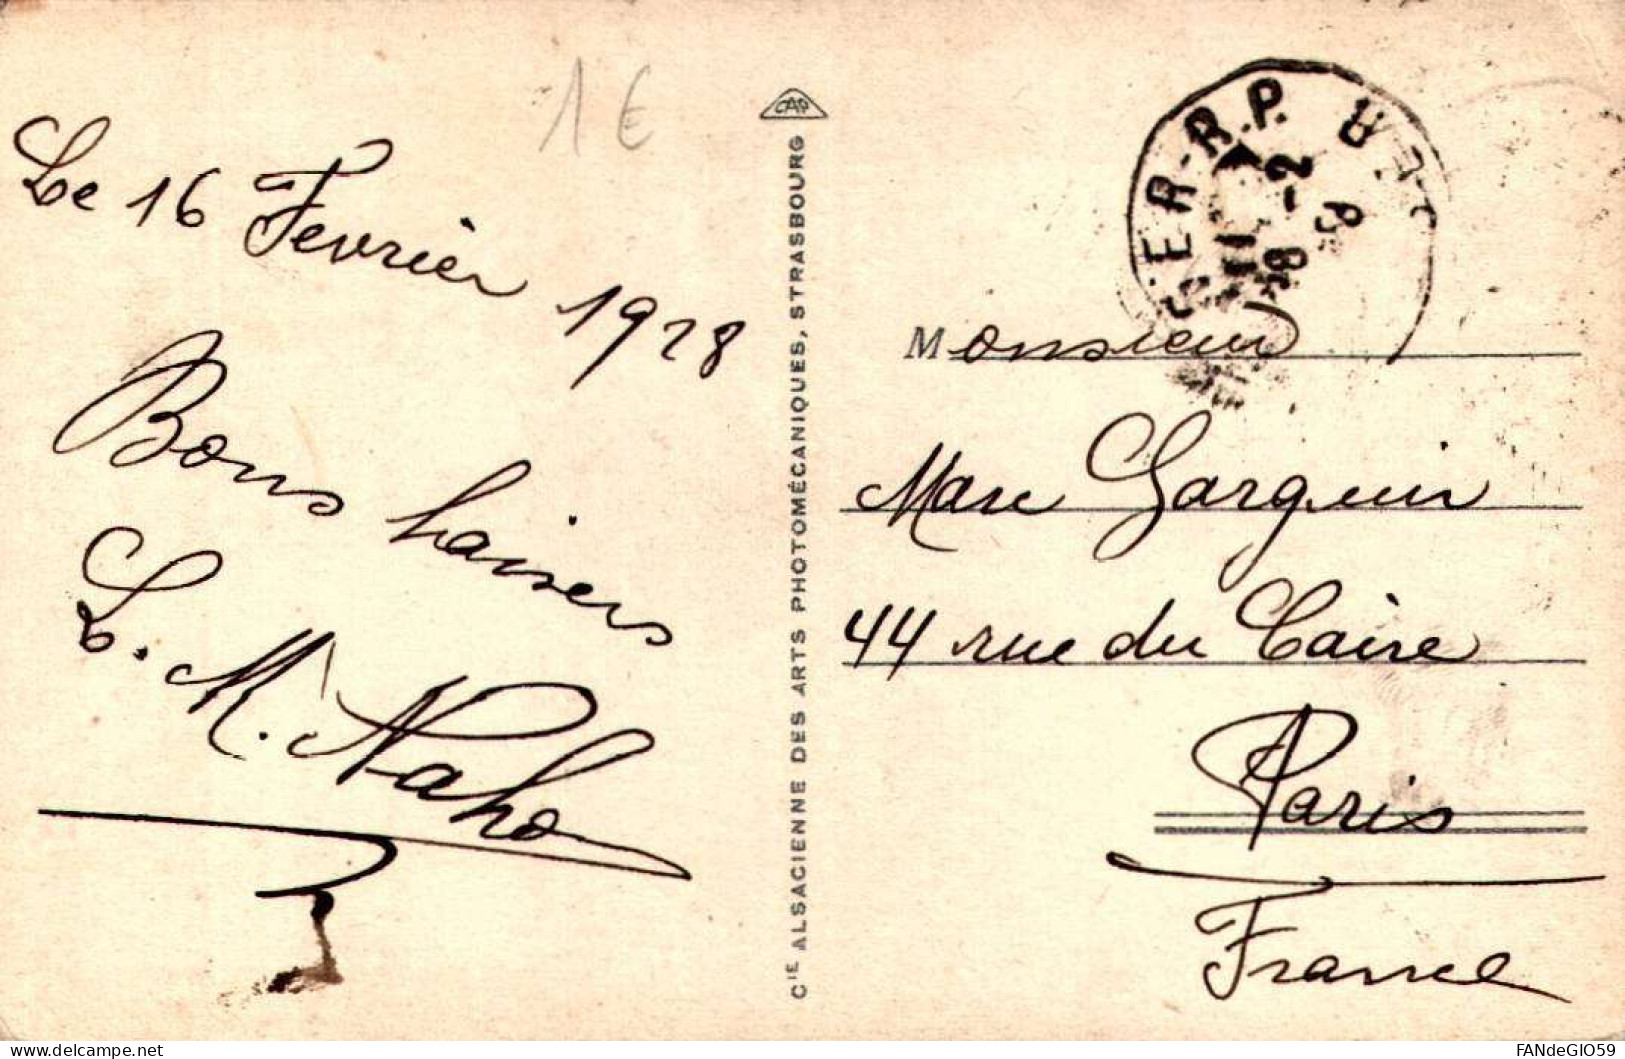 1€
Le 16 Fevrier 1928
Bons baisers
L. M. Naho
CAP
Cie ALSACIENNE DES ARTS PHOTOMÉCANIQUES, STRASBOURG
GER-R.P.
Monsieur
Marc Garguin
44 rue du Caire
Paris
France
delcampe.net
FANdeGIO59